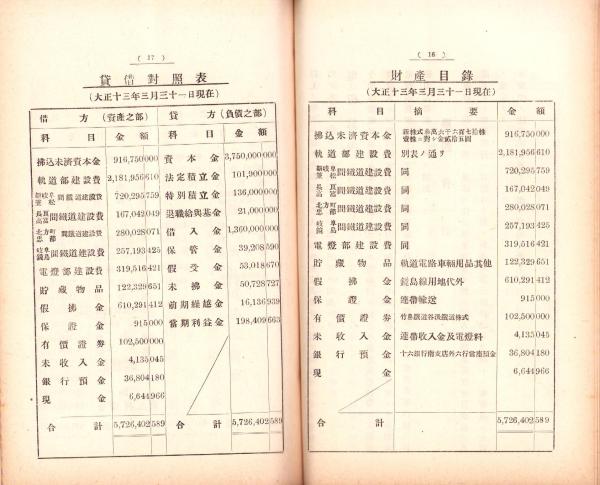 ( 16 )
財產目錄
(大正十三年三月三十一日現在)
科目 摘要 金額
拂込未濟資本金 新株式參萬六千六百七拾株 壹株ニ對シ金貳拾五圓 916,750 000
軌道部建設費 別表ノ通リ 2,181,956 610
新岐阜 笠松 間鐵道建設費 同 720,295 759
長良 高富 間鐵道建設費 同 167,042 049
北方町 忠節 間鐵道建設費 同 280,028 071
岐阜 鏡島 間鐵道建設費 同 257,193 425
電燈部建設費 同 319,516 421
貯藏物品 軌道電路車輛用品其他 122,329 651
假拂金 鏡島線用地代外 610,291 412
保證金 連帶輸送 915 000
有價證券 竹鼻鐵道谷汲鐵道株式 102,500 000
未收入金 連帶收入金及電燈料 4,135 045
銀行預金 十六銀行南支店外六行當座預金 36,804 180
現金 6,644 966
合計 5,726,402 589
( 17 )
貸借對照表
(大正十三年三月三十一日現在)
借方 (資產之部) 貸方 (負債之部)
科目 金額 科目 金額
拂込未濟資本金 916,750 000 資本金 3,750,000 000
軌道部建設費 2,181,956 610 法定積立金 101,900 000
新岐阜 笠松 間鐵道建設費 720,295 759 特別積立金 136,000 000
長良 高富 間鐵道建設費 167,042 049 退職給與基金 21,000 000
北方町 忠節 間鐵道建設費 280,028 071 借入金 1,360,000 000
岐阜 鏡島 間鐵道建設費 257,193 425 保管金 39,208 590
電燈部建設費 319,516 421 假受金 53,018 670
貯藏物品 122,329 651 未拂金 50,728 727
假拂金 610,291 412 前期繰越金 16,136 939
保證金 915 000 當期利益金 198,409 663
有價證券 102,500 000
未收入金 4,135 045
銀行預金 36,804 180
現金 6,644 966
合計 5,726,402 589 合計 5,726,402 589